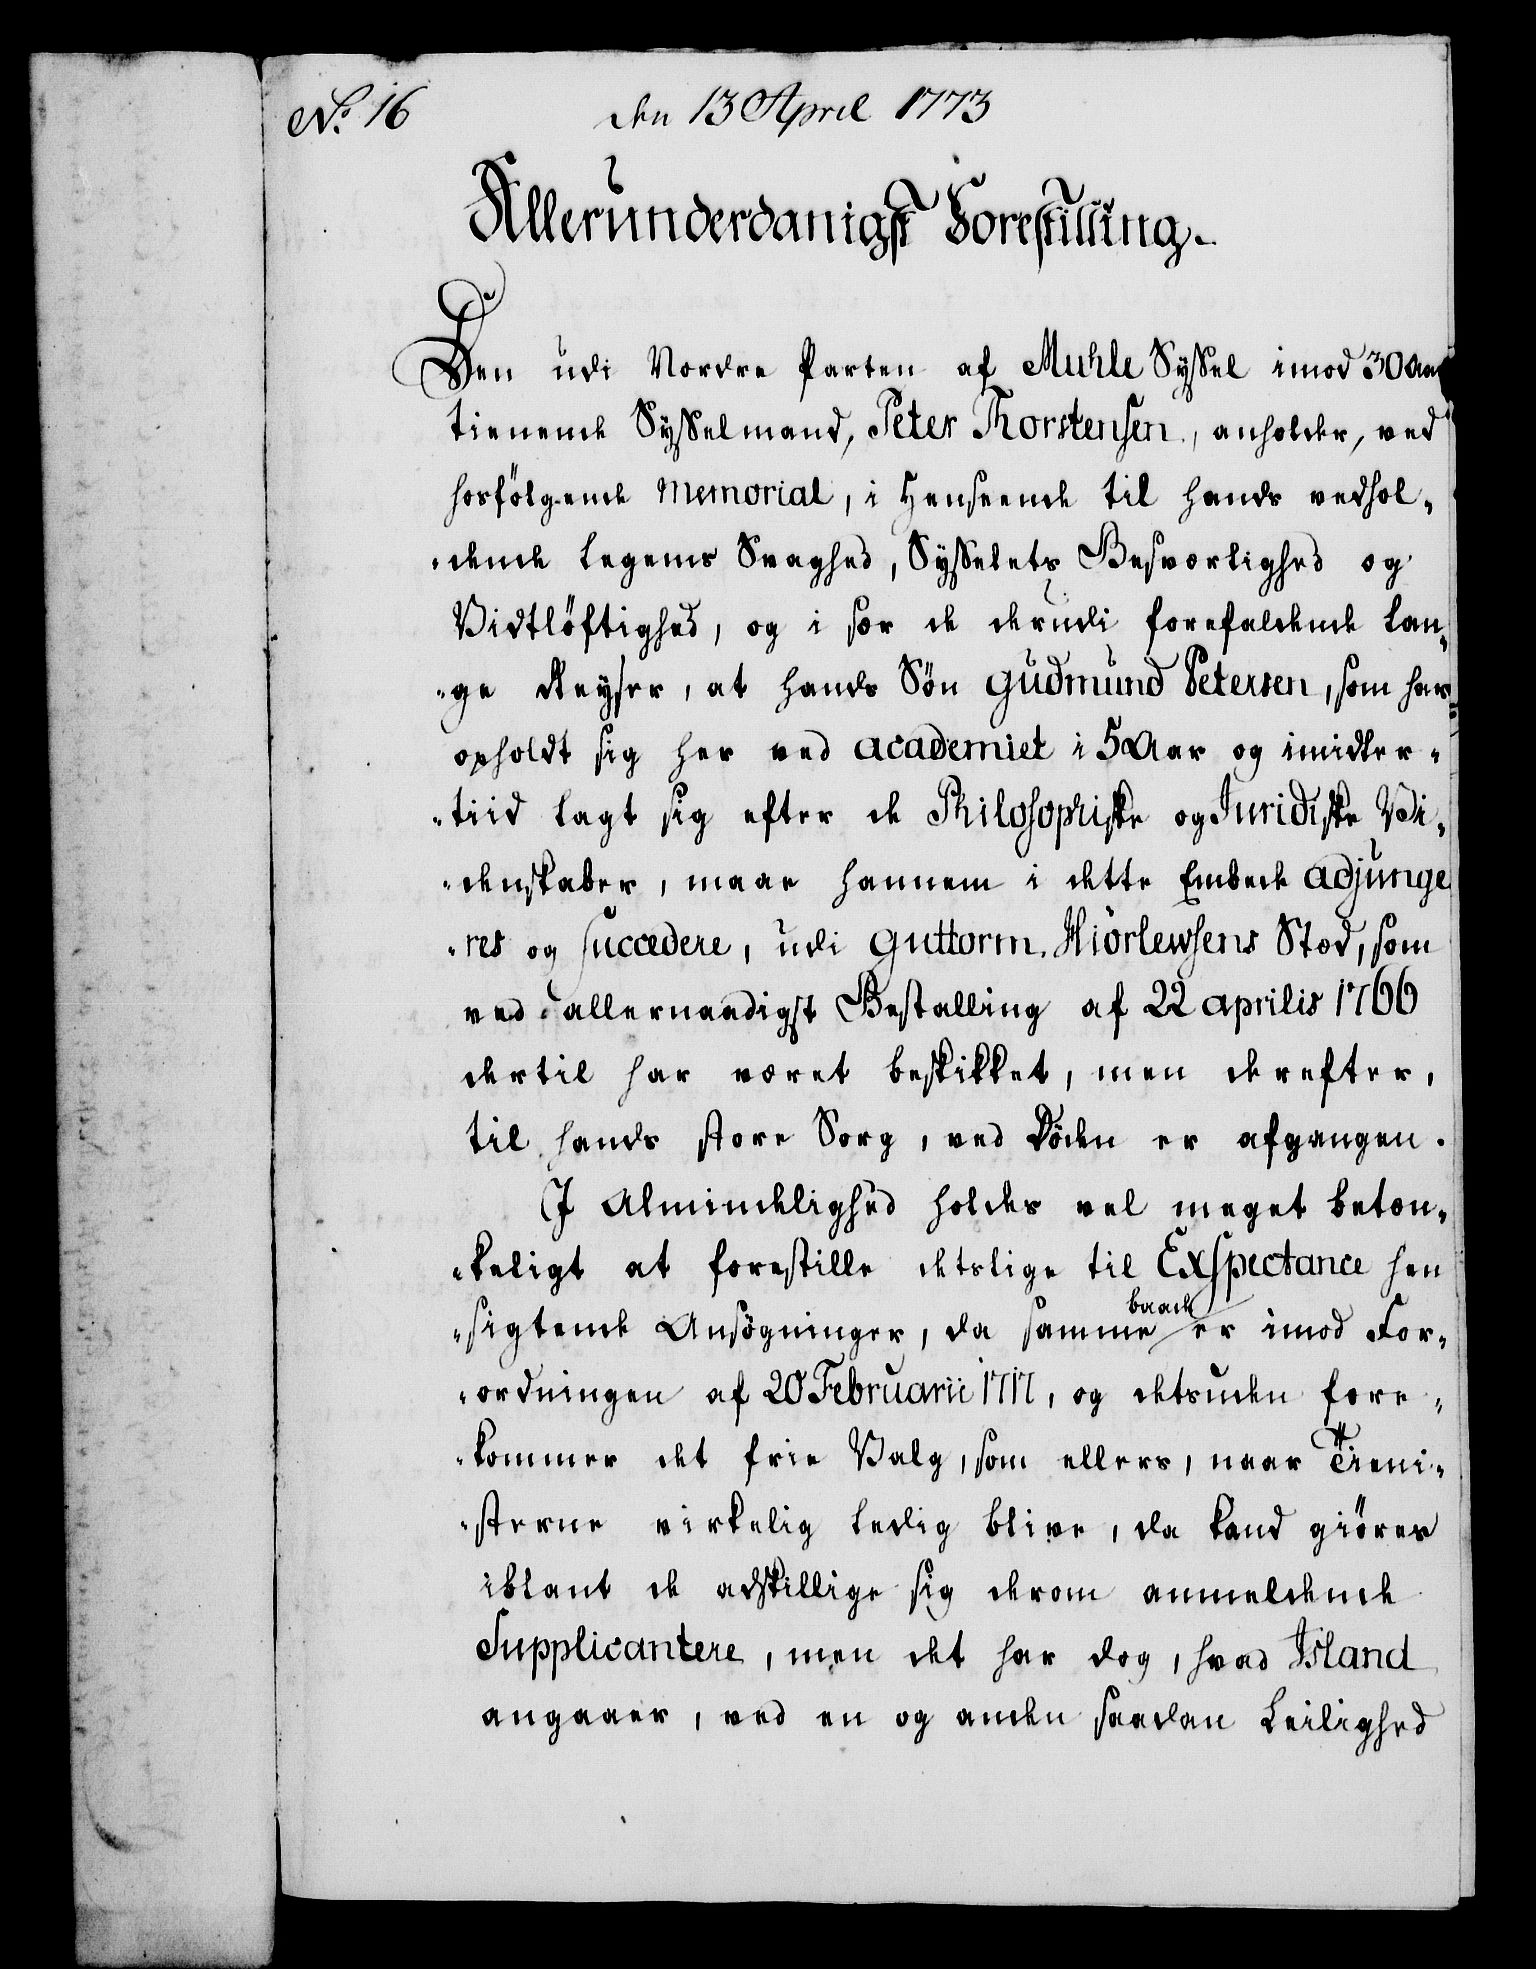 No. 16
den 13 April 1773
Allerunderdanigst Forestilling.
Den udi Nordre Parten af Muhle Syssel imod 30 Aar
tienende Sysselmand, Peter Thorstensen, anholder, ved
hosfölgende Memorial, i Henseende til hands vedhol-
-dende Legems Svaghed, Sysselets Besværlighed og
Vidtløftighed, og i sær de derudi forefaldende lan-
-ge Reyser, at hands Sön Gudmund Petersen, som har
opholdt sig her ved Academiet i 5 Aar og imidler-
-tiid lagt sig efter de Philosophiske og Juridiske Vi-
-denskaber, maae hannem i dette Embede adjunge
-res og succedere, udi Guttorm Hiörlewsens Stæd, som
ved allernaadigst Bestalling af 22 Aprilis 1766
dertil har været beskikket, men derefter,
til hands store Sorg, ved Döden er afgangen.
I Almindelighed holdes vel meget betæn-
-keligt at forestille detslige til Exspectance hen
-sigtende Ansögninger, da samme baade er imod For-
-ordningen af 20 Februarii 1717, og detsuden fore-
-kommer det frie Valg, som ellers, naar Tieni-
-sterne virkelig ledig blive, da kand giöres
iblant de adskillige sig derom anmeldende
Supplicantere, men det har dog, hvad Island
angaaer, ved en og anden saadan Leilighed